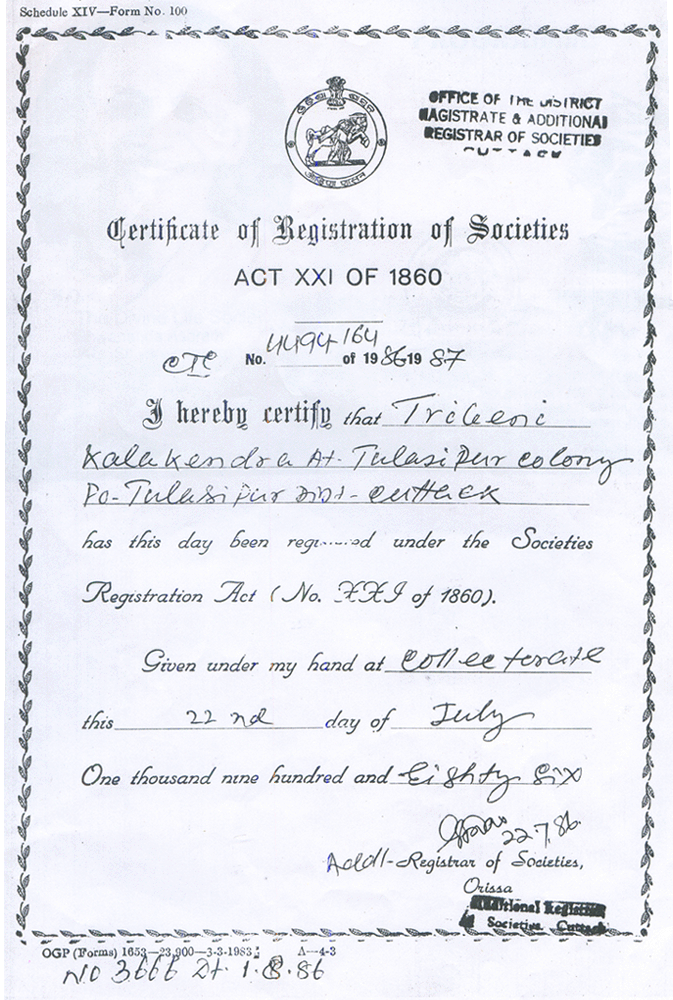 Schedule XIV—Form No. 100
OFFICE OF THE DISTRICT
MAGISTRATE & ADDITIONAL
REGISTRAR OF SOCIETIES
CUTTACK
Certificate of Registration of Societies
ACT XXI OF 1860
CTC No. 4494/164 of 1986 1987
I hereby certify that Tribeni
Kalakendra At- Tulasipur colony
Po- Tulasipur Dist- Cuttack
has this day been reg.....ed under the Societies
Registration Act (No. XXI of 1860).
Given under my hand at Collectorate
this 22nd day of July
One thousand nine hundred and Eighty Six
22.7.86.
Addl-Registrar of Societies,
Orissa
Additional Registrar
Societies, Cuttack
OGP (Forms) 1653—23,900—3-3-1983 A—4-3
NO 3666 Dt. 1.8.86